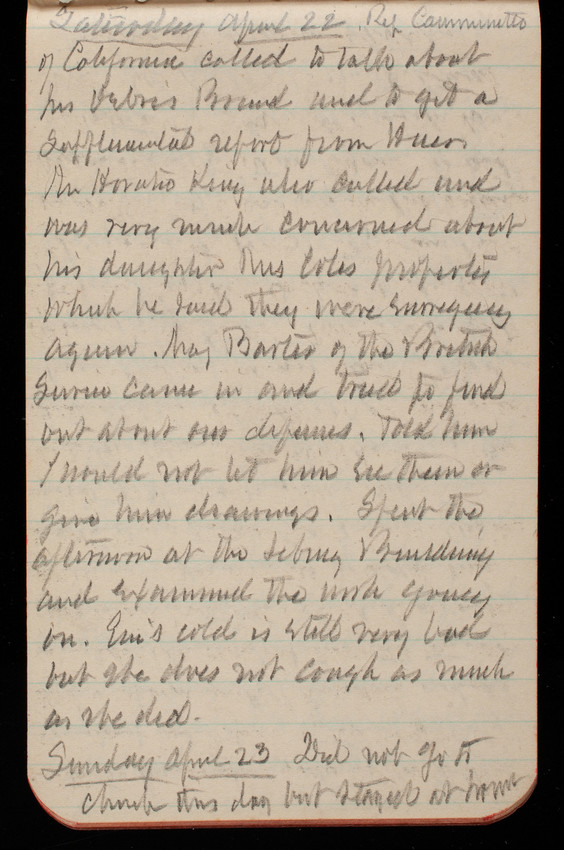 Saturday April 22. Rep Camminetti
of California called to talk about
his Debris Board and to get a
Supplemental report from Heuer
Mr Horatio King also called and
was very much concerned about
his daughter Mrs Coles property
which he said they were surveying
again. Maj Barter of the British
Service came in and tried to find
out about our defenses. Told him
I would not let him see them or
give him drawings. Spent the
afternoon at the Library Building
and examined the work going
on. Em's cold is still very bad
but she does not cough as much
as she did.
Sunday April 23 Did not go to
church this day but stayed at home